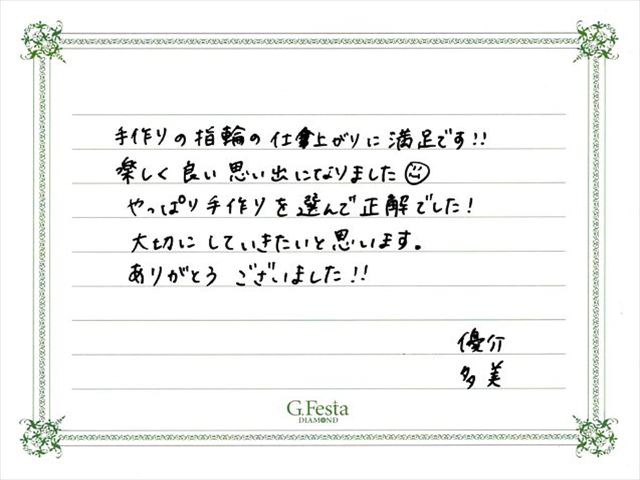 手作りの指輪の仕事上がりに満足です!!
楽しく良い思い出になりました☺
やっぱり手作りを選んで正解でした!
大切にしていきたいと思います。
ありがとうございました!!
優介
多美
G.Festa
DIAMOND